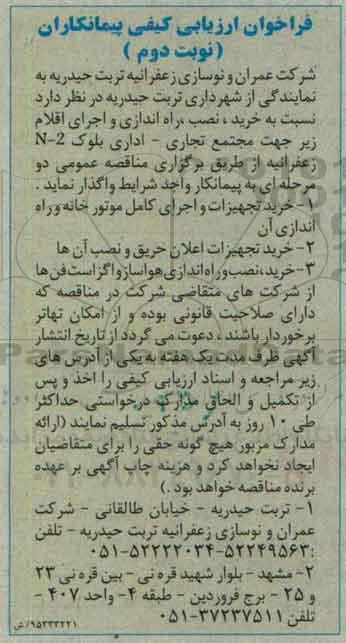 فراخوان ارزیابی کیفی پیمانکاران
(نوبت دوم)
شرکت عمران و نوسازی زعفرانیه تربت حیدریه به
نمایندگی از شهرداری تربت حیدریه در نظر دارد
نسبت به خرید ، نصب ،راه اندازی و اجرای اقلام
زیر جهت مجتمع تجاری - اداری بلوک N-2
زعفرانیه از طریق برگزاری مناقصه عمومی دو
مرحله ای به پیمانکار واجد شرایط واگذار نماید .
۱- خرید تجهیزات و اجرای کامل موتور خانه و راه
اندازی آن
۲- خرید تجهیزات اعلان حریق و نصب آن ها
۳-خرید،نصب وراه اندازی هواساز و اگزاست فن ها
از شرکت های متقاضی شرکت در مناقصه که
دارای صلاحیت قانونی بوده و از امکان تهاتر
برخوردار باشند ، دعوت می گردد از تاریخ انتشار
آگهی ظرف مدت یک هفته به یکی از آدرس های
زیر مراجعه و اسناد ارزیابی کیفی را اخذ و پس
از تکمیل و الحاق مدارک درخواستی حداکثر
طی ۱۰ روز به آدرس مذکور تسلیم نمایند (ارائه
مدارک مزبور هیچ گونه حقی را برای متقاضیان
ایجاد نخواهد کرد و هزینه چاپ آگهی بر عهده
برنده مناقصه خواهد بود .)
۱- تربت حیدریه - خیابان طالقانی - شرکت
عمران و نوسازی زعفرانیه تربت حیدریه - تلفن
:۵۲۲۴۹۵۶۳-۵۲۲۲۲۰۳۴-۰۵۱
۲- مشهد - بلوار شهید قره نی - بین قره نی ۲۳
و ۲۵ - برج فروردین - طبقه ۴- واحد ۴۰۷ -
تلفن ۳۷۲۳۷۵۱۱-۰۵۱
۹۵۲۳۳۲۲۱/ش